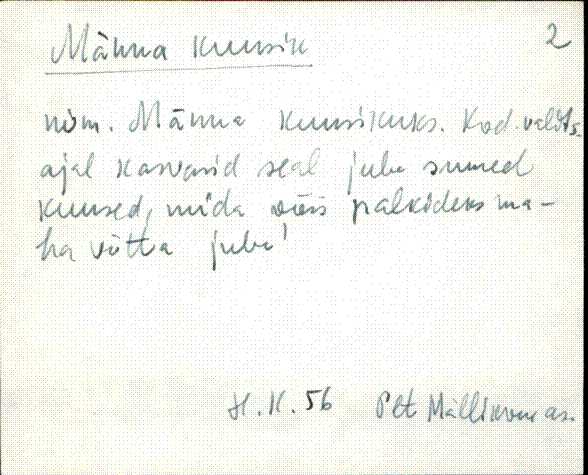 Männa kuusik 2
nim. Männa kuusikuks. Kod. valits.
ajal kasvasid seal juba suured
kuused, mida võis palkideks ma-
ha võtta juba!
H.K. 56 Plt